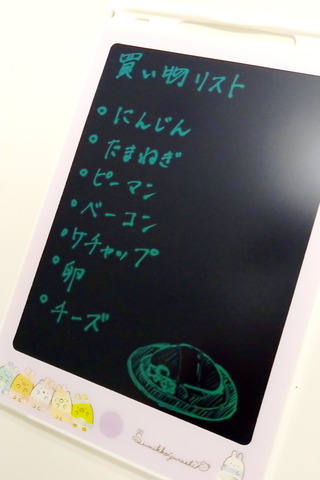 買い物リスト
° にんじん
° たまねぎ
° ピーマン
° ベーコン
° ケチャップ
° 卵
° チーズ